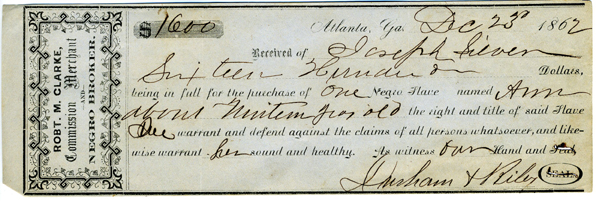 ROBT. M. CLARKE,
Commission Merchant
AND
NEGRO BROKER,
$1600 Atlanta, Ga. Dec 23d 1862
Received of Joseph
Sixteen Hundred Dollars,
being in full for the purchase of One Negro Slave named Ann
about Ninteen yrs old the right and title of said Slave
We warrant and defend against the claims of all persons whatsoever, and like-
wise warrant her sound and healthy. As witness our Hand and Seal.
& Riley SEAL.